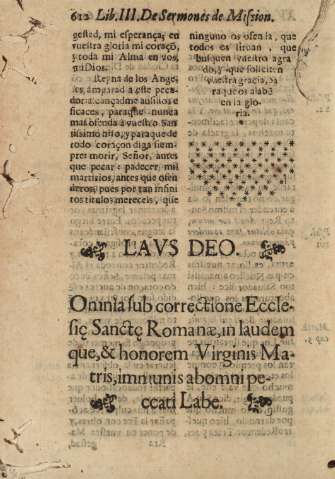 612 Lib. III. De Sermones de Mission.
gestad, mi esperança, en
vuestra gloria mi coraçõ,
y toda mi Alma en vos,
mi Dios.
Reyna de los Ange-
les, amparad a este peca-
dor: alcançadme auxilios e
ficaces, paraque nunca
mas ofenda a vuestro San
tissimo hijo, y paraque de
todo coraçon diga siem-
pre: morir, Señor, antes
que pecar: padecer, mil
martirios, antes que ofen
deros, pues por tan infini
tos titulos mereceis, que
ninguno os ofenda, que
todos es siruan, que
busquen vuestro agra
do, y que soliciten
vuestra gracia, pa
ra que os alabẽ
en la glo-
ria.
LAVS DEO.
Omnia sub correctione Eccle-
się Sanctę Romanæ, in laudem
que, & honorem Virginis Ma-
tris, immunis ab omni pe-
ccati Labe.